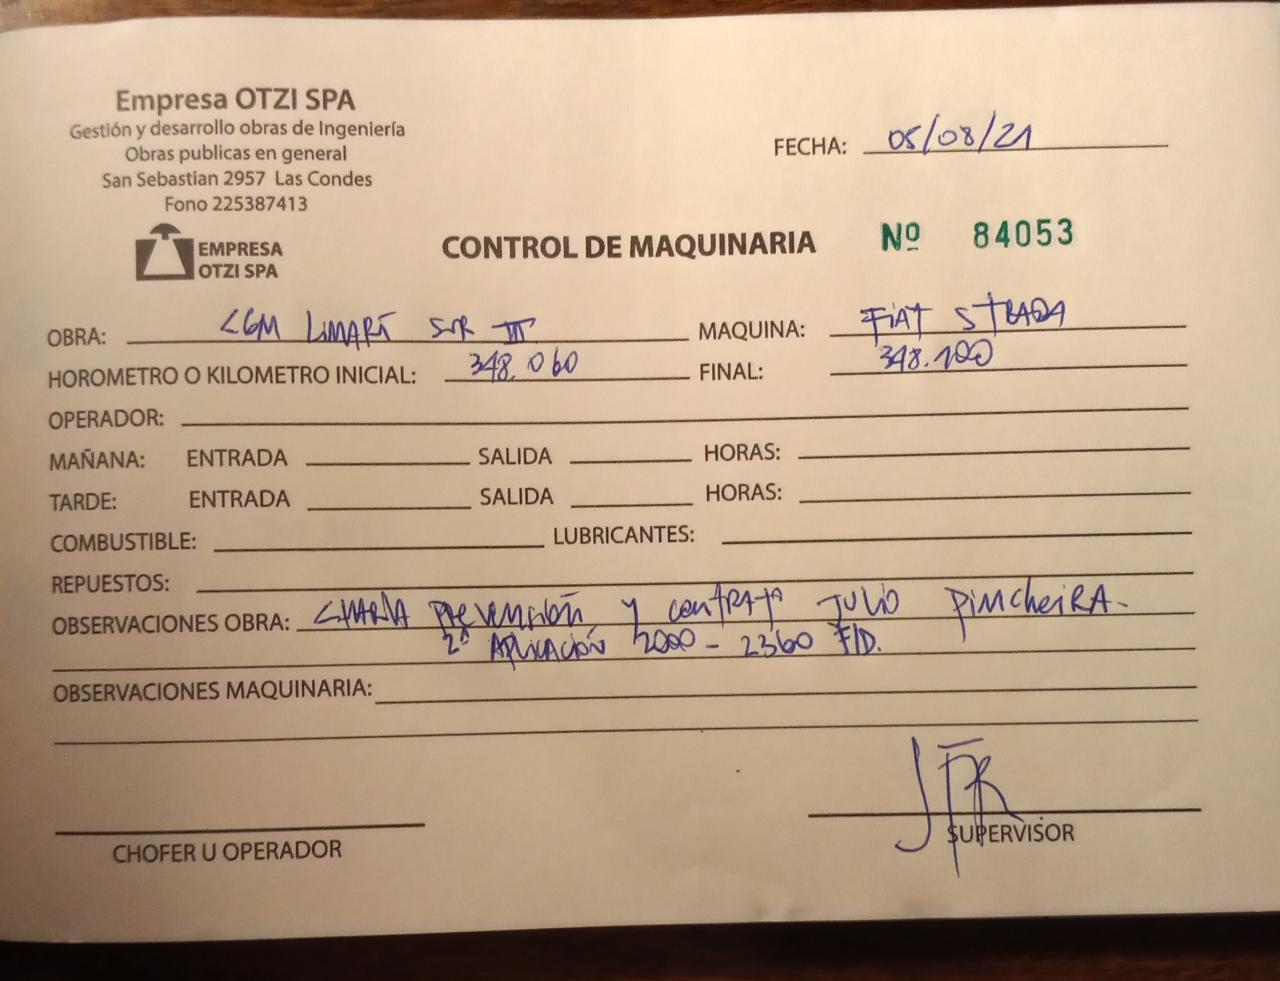 Empresa OTZI SPA
Gestión y desarrollo obras de Ingeniería
Obras publicas en general
San Sebastian 2957 Las Condes
Fono 225387413
EMPRESA
OTZI SPA
FECHA: 05/08/21
CONTROL DE MAQUINARIA Nº 84053
OBRA: CGM LIMARÍ SUR III MAQUINA: FIAT STRADA
HOROMETRO O KILOMETRO INICIAL: 348.060 FINAL: 348.100
OPERADOR:
MAÑANA: ENTRADA SALIDA HORAS:
TARDE: ENTRADA SALIDA HORAS:
COMBUSTIBLE: LUBRICANTES:
REPUESTOS:
OBSERVACIONES OBRA: CHARLA PREVENCIÓN Y CONTRATO JULIO PIMCHEIRA-
2ª APLICACIÓN 2000 - 2360 F/D.
OBSERVACIONES MAQUINARIA:
CHOFER U OPERADOR
SUPERVISOR